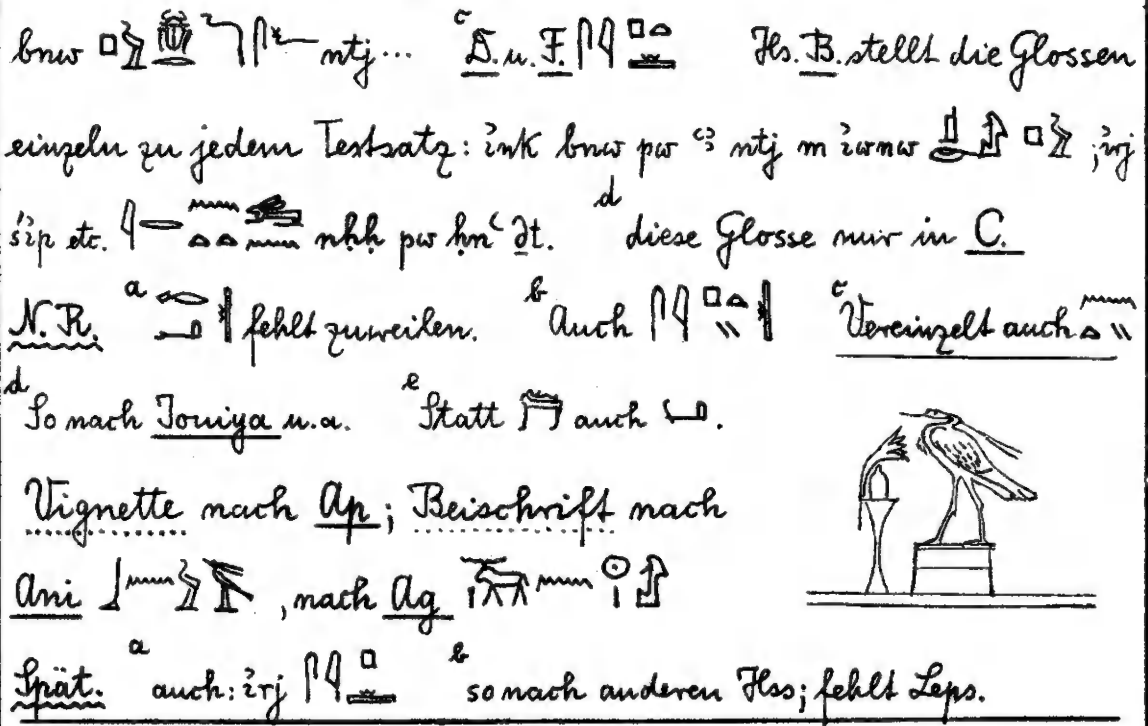 bnw 𓊪𓅱 𓆣𓂋 𓆓𓋴 𓆑 ntj... ᶜ D. u. F. 𓋴𓇋𓊪𓏏 Hs. B. stellt die Glossen
einzeln zu jedem Textsatz: ỉnk bnw pw ꜥꜣ ntj m ỉwnw 𓊨𓁹𓀭 𓊪𓅱; ỉrj
śỉp etc. 𓇋𓂋 𓈖𓏏𓏏 𓈖 nḥḥ pw ḥnꜥ ḏt. ᵈ diese Glosse nur in C.
N.R. ᵃ fehlt zuweilen. ᵇ Auch 𓋴𓇋𓊪𓏏𓏭𓏛 ᶜ Vereinzelt auch 𓈖𓏏𓏭
ᵈ So nach Jouiya u.a. ᵉ Statt auch 𓂝.
Vignette nach Ap; Beischrift nach
Ani 𓃀𓈖𓅱𓅣, nach Ag 𓈖𓇳𓏤𓀭
Spät. ᵃ auch: ỉrj 𓋴𓇋𓊪 ᵇ so nach anderen Hss; fehlt Leps.